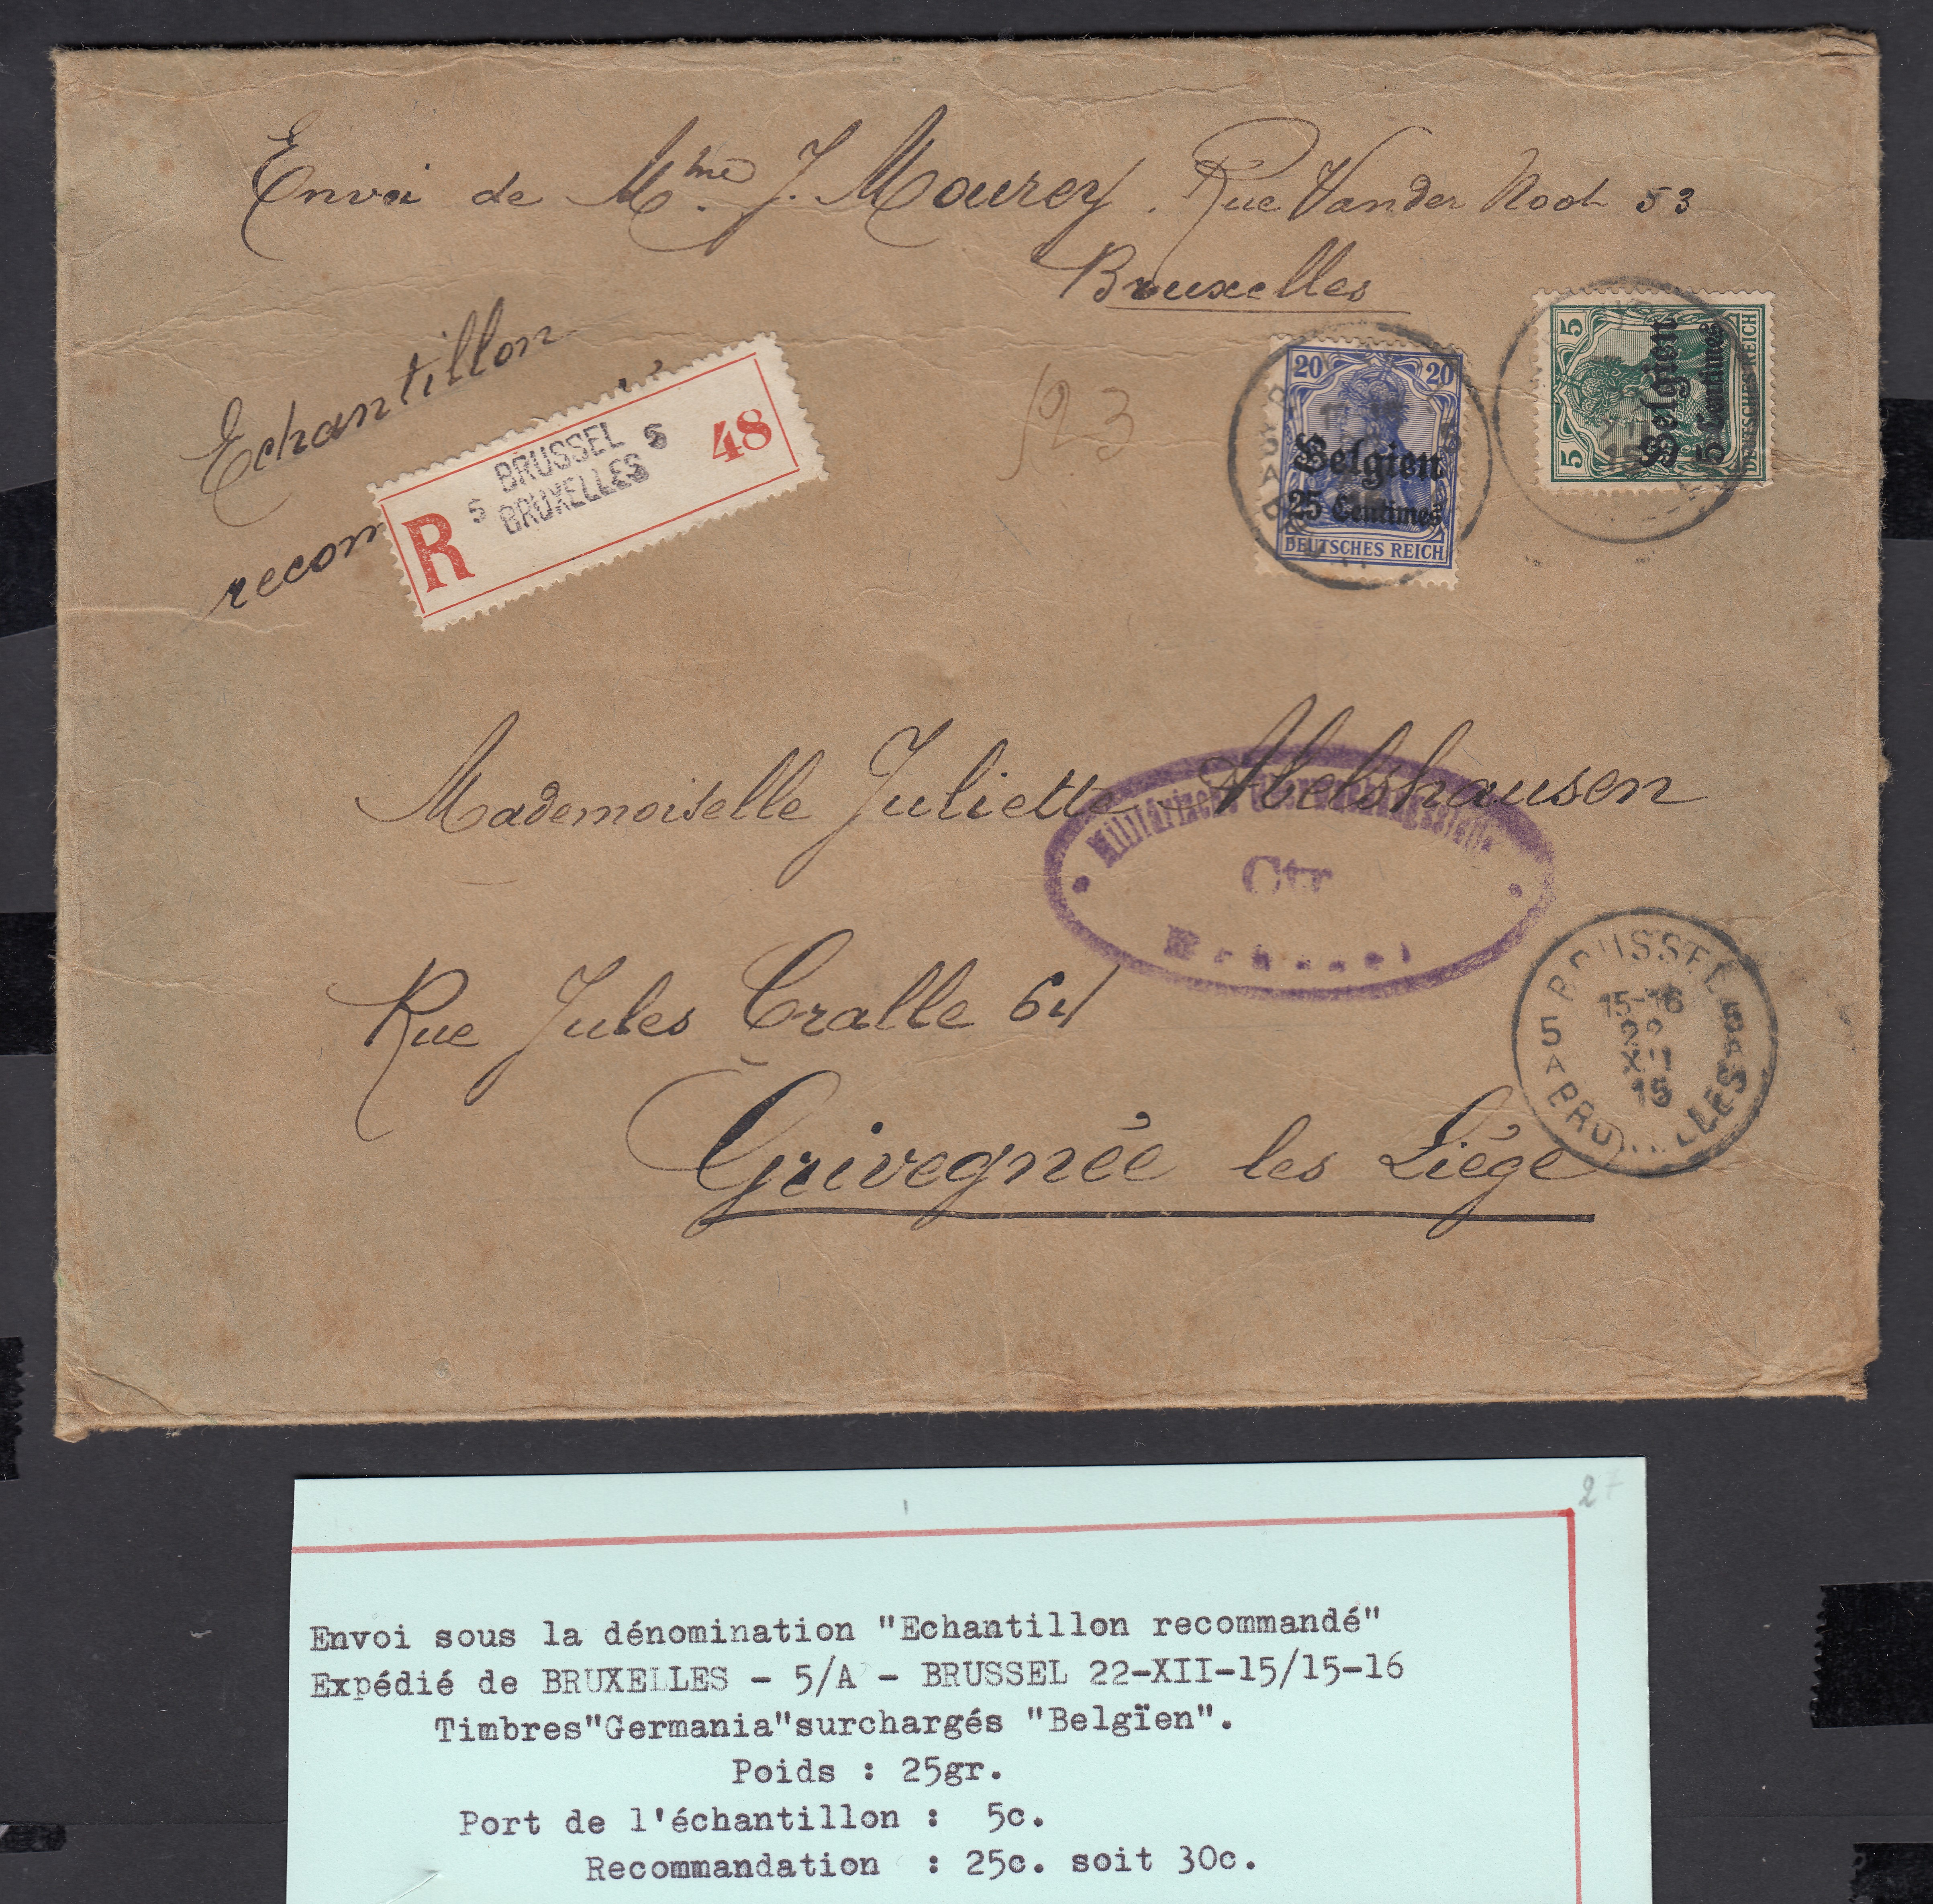 Envoi de Mme. J. Mourey. Rue Vander Noot 53
Bruxelles
Echantillon
recom
R
5 BRUSSEL 5
BRUXELLES
48
123
20 20
Belgien
25 Centimes
DEUTSCHES REICH
5 5
Belgien
5 Centimes
DEUTSCHES REICH
Mademoiselle Juliette Abelshausen
Militärische Überwachungsstelle
Ctr
Brüssel
Rue Jules Cralle 64
Grivegnée les Liége
BRUSSEL
15-16
XII
15
5 A BRUXELLES
27
Envoi sous la dénomination "Echantillon recommandé"
Expédié de BRUXELLES - 5/A - BRUSSEL 22-XII-15/15-16
Timbres"Germania"surchargés "Belgïen".
Poids : 25gr.
Port de l'échantillon : 5c.
Recommandation : 25c. soit 30c.